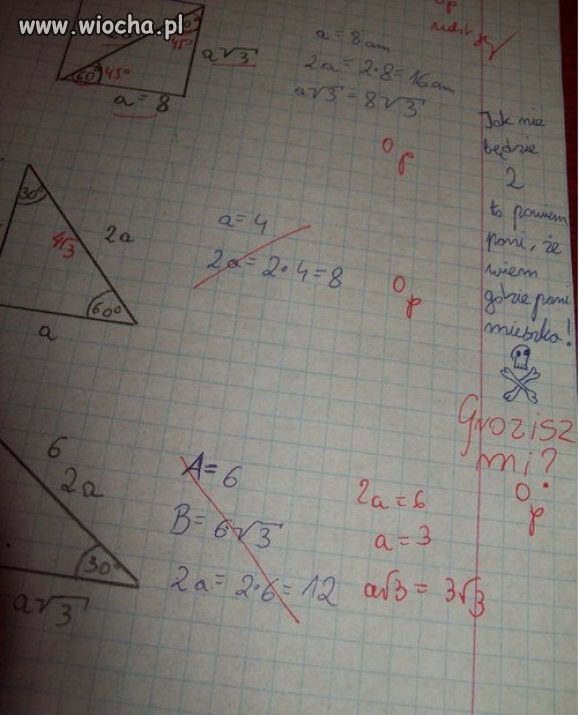 www.wiocha.pl
45°
a√3
60° 45°
a = 8
a = 8 cm
2a = 2·8 = 16 cm
a√3 = 8√3
0p
30°
4√3
2a
60°
a
a = 4
2a = 2·4 = 8
0p
Jak nie
będzie
2
to powiem
pani, że
wiem
gdzie pani
mieszka!
Grozisz
mi?
0p
6
2a
30°
a√3
A = 6
B = 6√3
2a = 2·6 = 12
2a = 6
a = 3
a√3 = 3√3